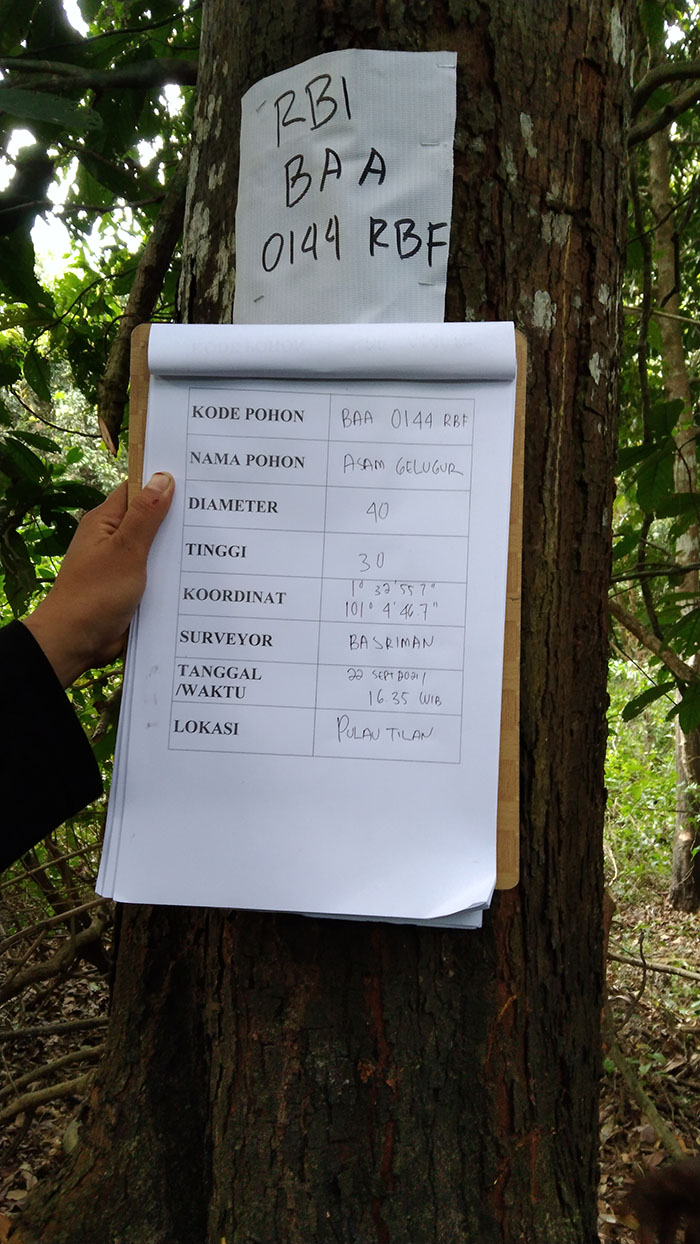 RBI
BAA
0144 RBF
KODE POHON BAA 0144 RBF
NAMA POHON ASAM GELUGUR
DIAMETER 40
TINGGI 30
KOORDINAT 1° 32'55 7"
101° 4'46.7"
SURVEYOR BASRIMAN
TANGGAL 22 SEPT 2021/
/WAKTU 16.35 WIB
LOKASI PULAU TILAN